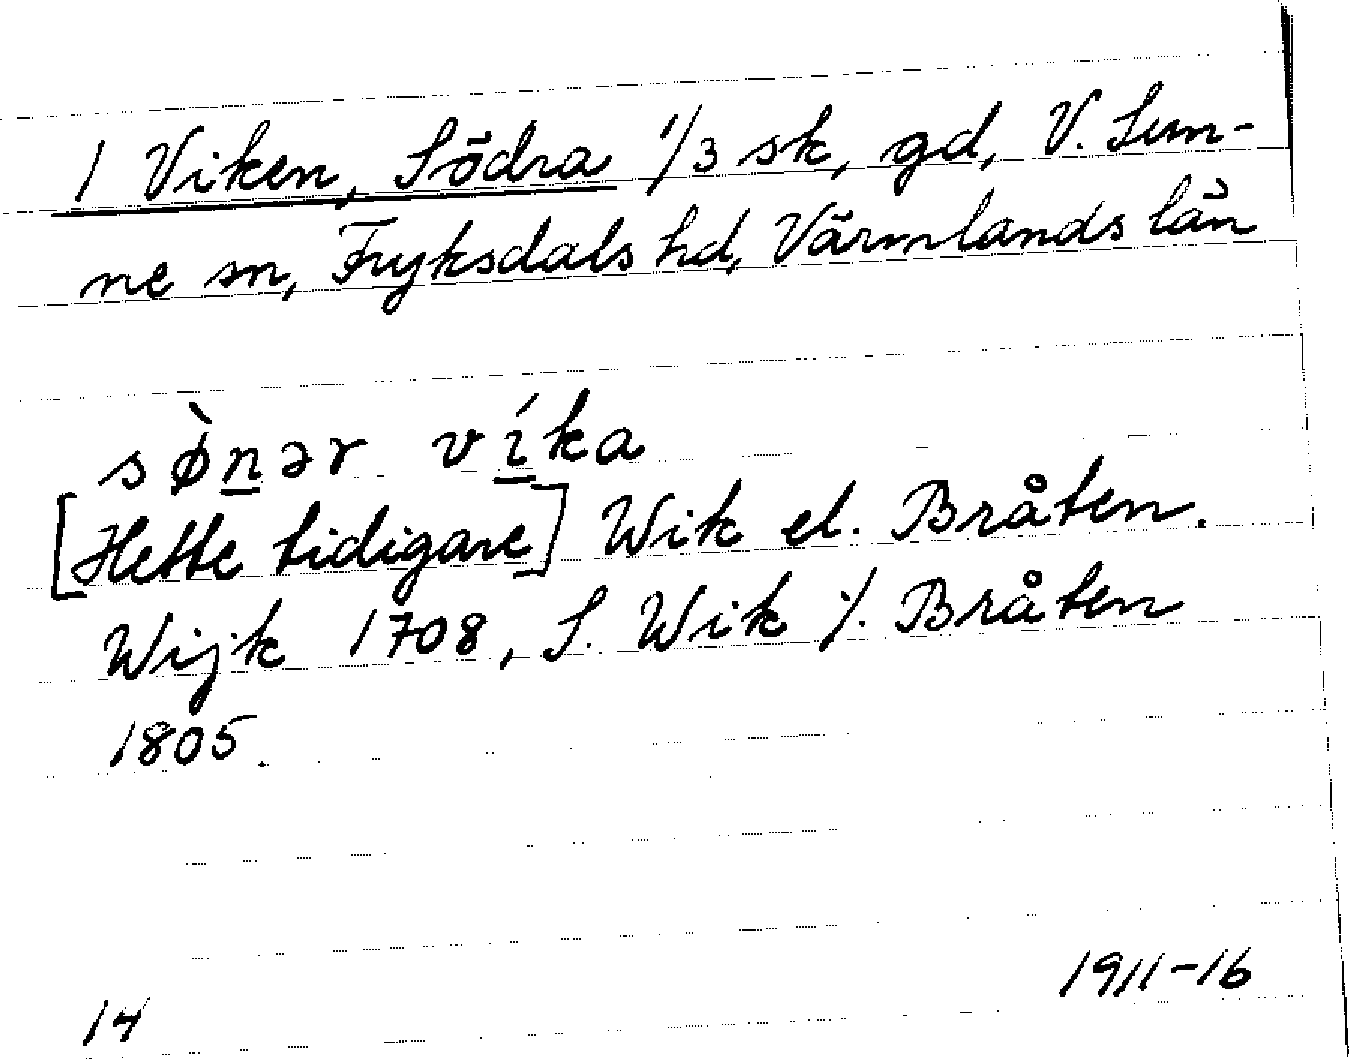 1 Viken, Södra 1/3 sk, gd, V. Sum-
ne sn, Fryksdals hd, Värmlands län
sø̀n̲ər ví̲ka
[Hette tidigare] Wik el. Bråten.
Wijk 1708, S. Wik ./. Bråten
1805.
14
1911-16